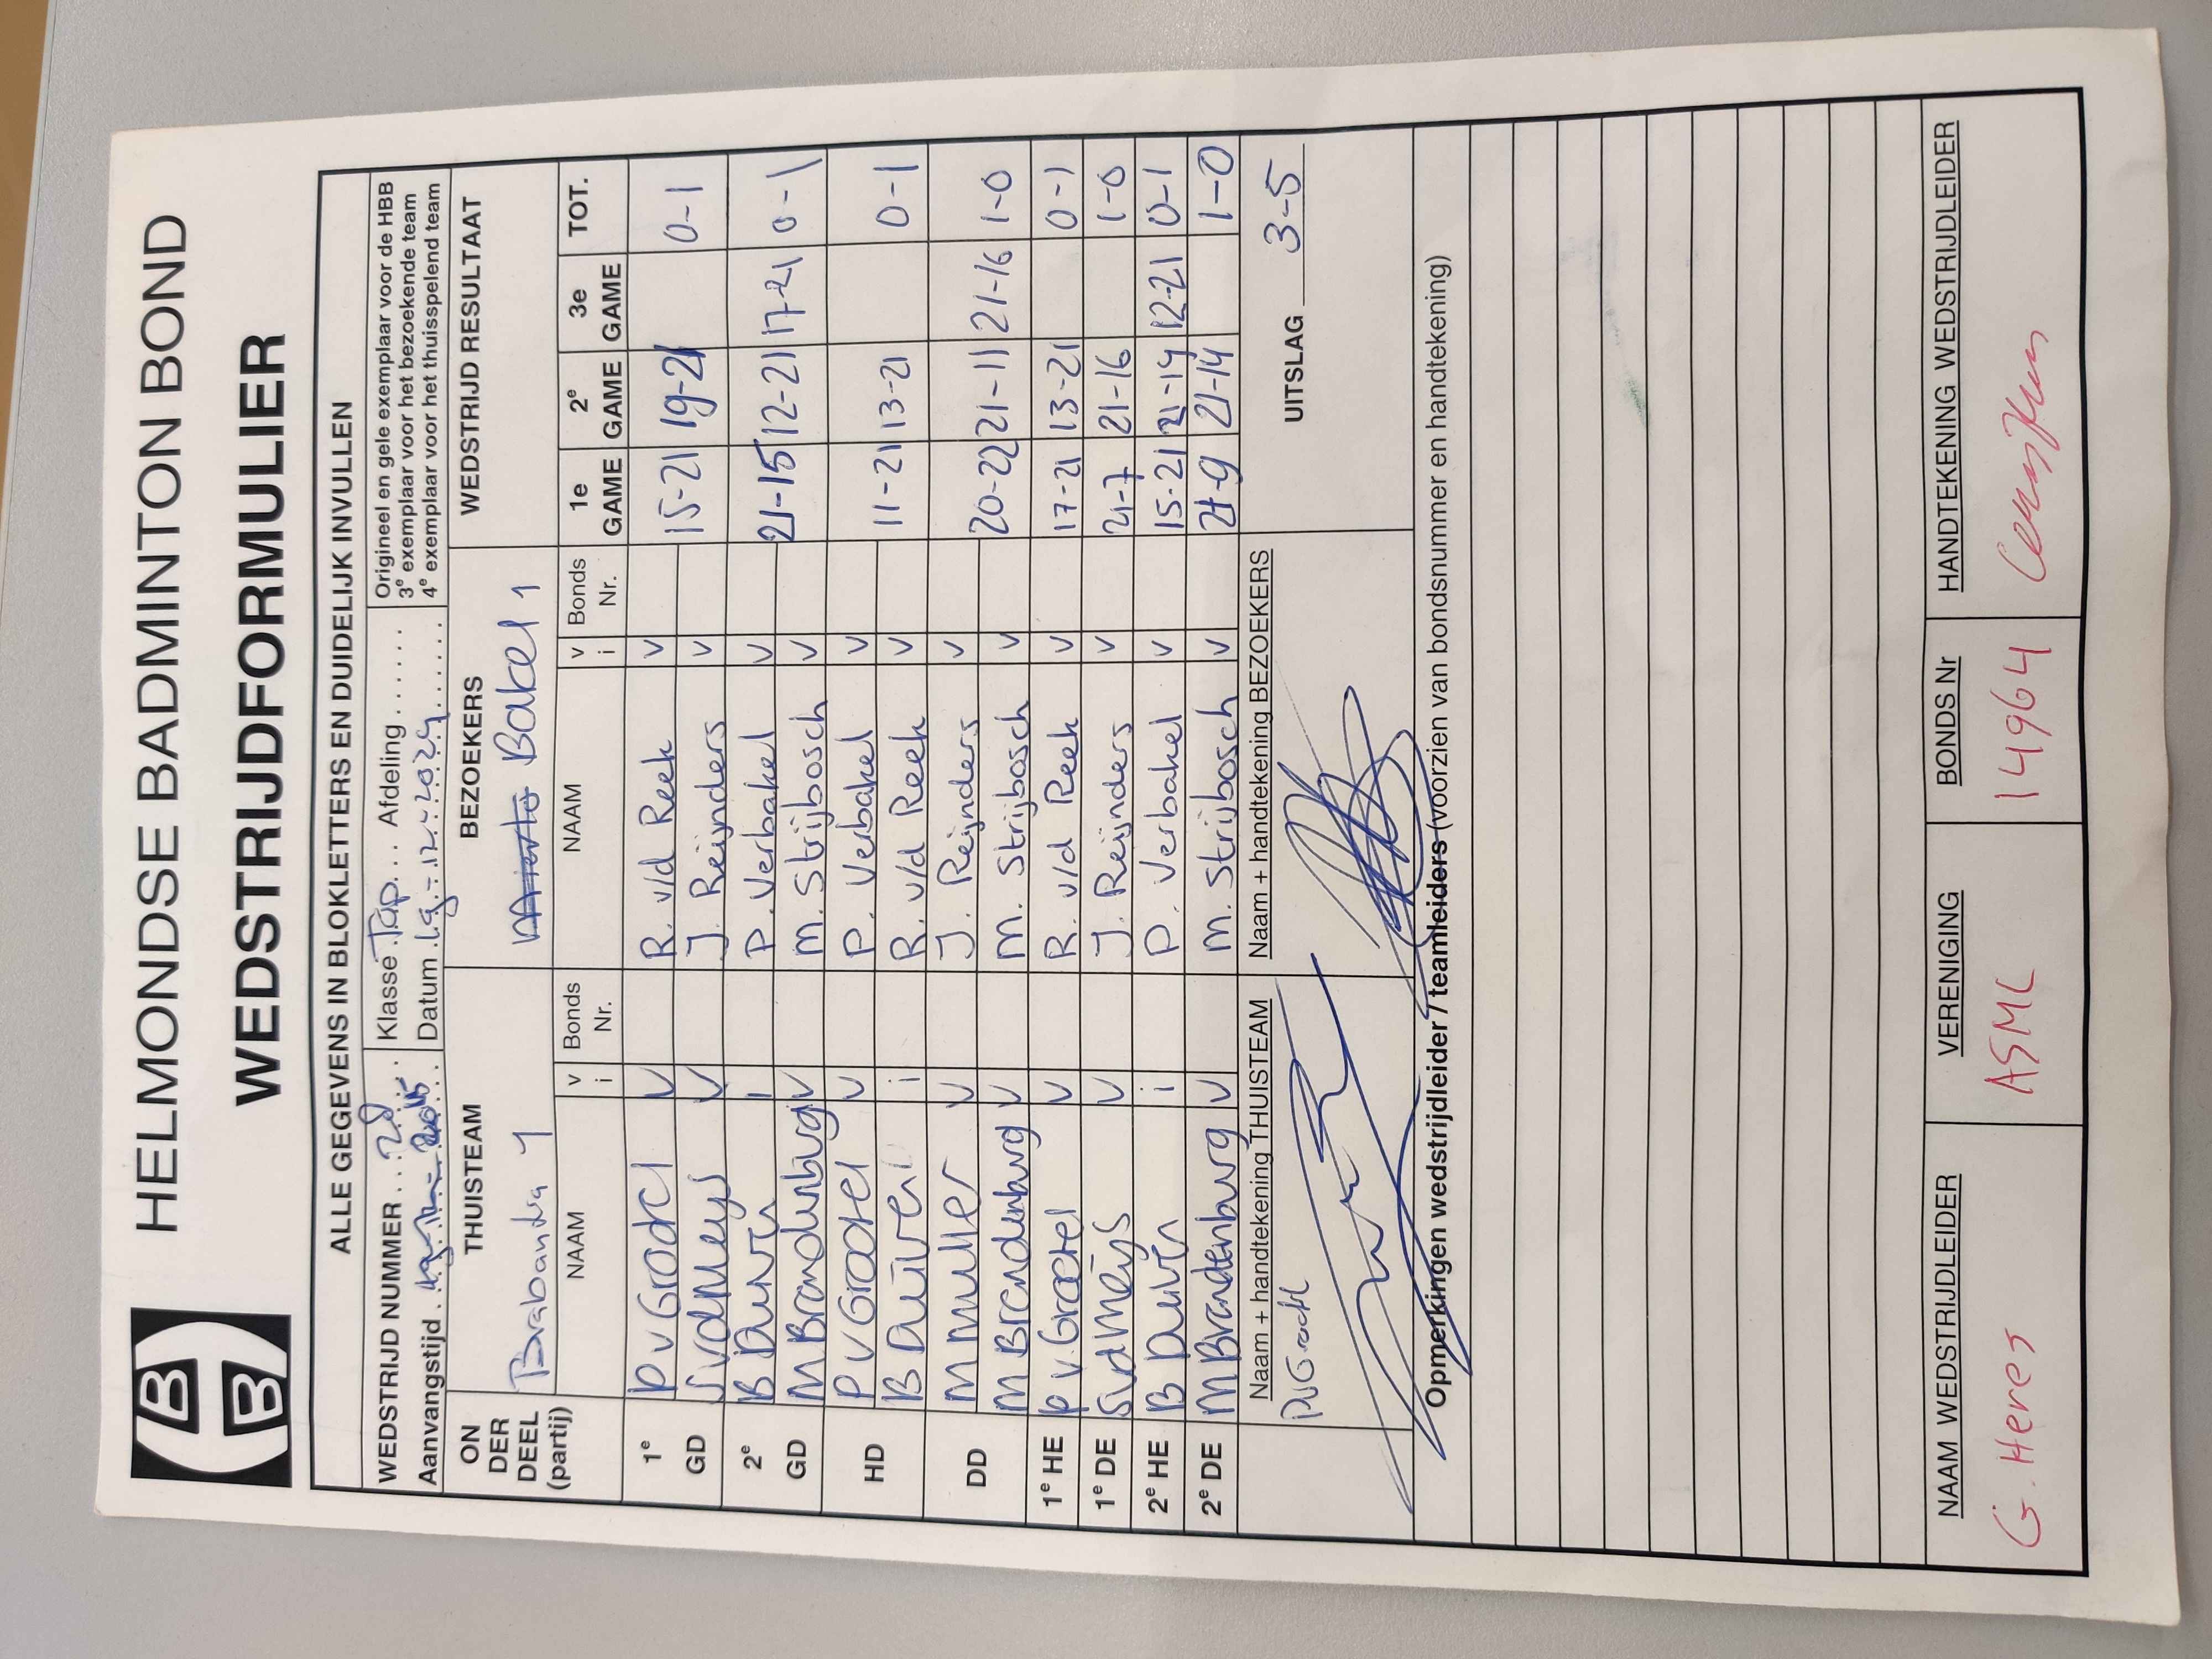 HELMONDSE BADMINTON BOND
WEDSTRIJDFORMULIER
ALLE GEGEVENS IN BLOKLETTERS EN DUIDELIJK INVULLEN
WEDSTRIJD NUMMER ... 28 .. Klasse Top... Afdeling ......
Aanvangstijd . Datum .19.-.12.-.2024......
Origineel en gele exemplaar voor de HBB
3e exemplaar voor het bezoekende team
4e exemplaar voor het thuisspelend team
ON DER DEEL (partij) THUISTEAM BEZOEKERS WEDSTRIJD RESULTAAT
Brabantia 1 Bakel 1
NAAM v i Bonds Nr. NAAM v i Bonds Nr. 1e GAME 2e GAME 3e GAME TOT.
1e GD P v Grootel V R. v/d Reek V 15-21 19-21 0-1
S vd Meijs V J. Reijnders V
2e GD B Duiven i P. Verbakel V 21-15 12-21 17-21 0-1
M Brandenburg V M. Strijbosch V
HD P v Grootel V P. Verbakel V 11-21 13-21 0-1
B Duiven i R. v/d Reek V
DD M Muller V J. Reijnders V 20-22 21-11 21-16 1-0
M Brandenburg V M. Strijbosch V
1e HE P v. Grootel V R. v/d Reek V 17-21 13-21 0-1
1e DE S vd Meijs V J. Reijnders V 21-7 21-16 1-0
2e HE B Duiven i P. Verbakel V 15-21 21-14 12-21 0-1
2e DE M Brandenburg V M. Strijbosch V 21-9 21-14 1-0
Naam + handtekening THUISTEAM Naam + handtekening BEZOEKERS
PvGrootel
UITSLAG 3-5
Opmerkingen wedstrijdleider / teamleiders (voorzien van bondsnummer en handtekening)
NAAM WEDSTRIJDLEIDER VERENIGING BONDS Nr HANDTEKENING WEDSTRIJDLEIDER
G. Heres ASML 14964